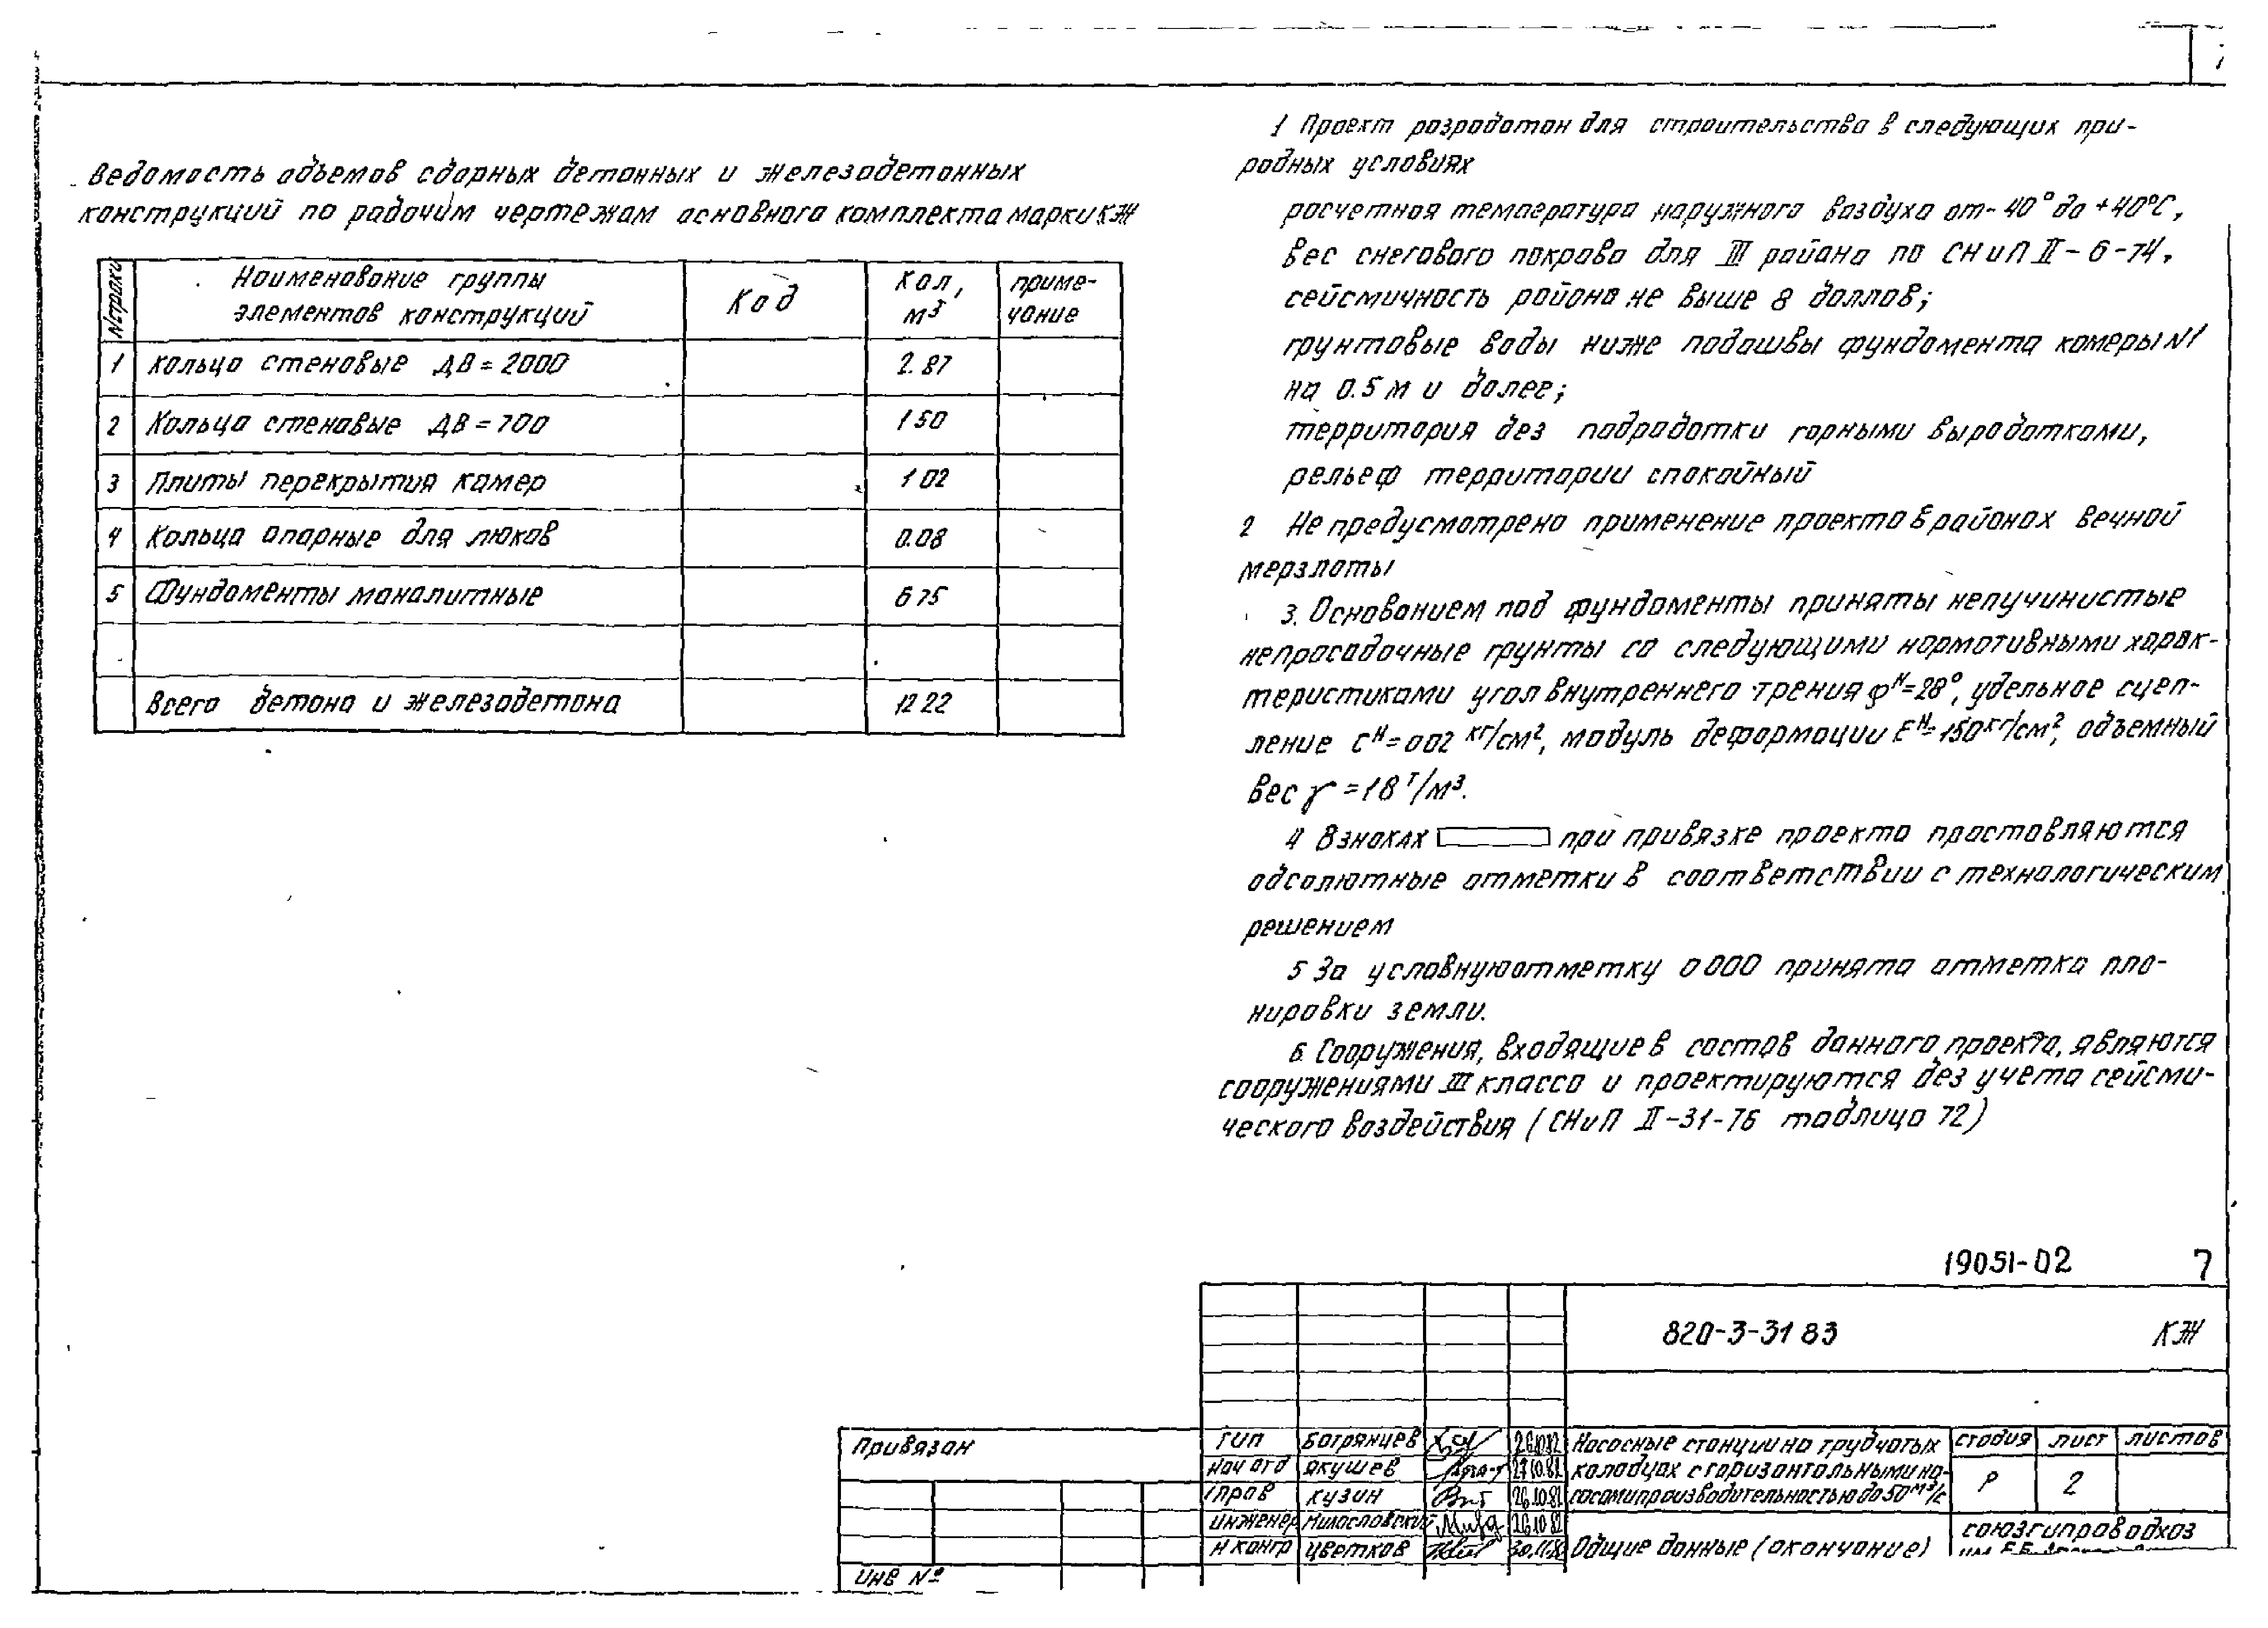 7
Ведомость объемов сборных бетонных и железобетонных
конструкций по рабочим чертежам основного комплекта марки КЖ
№ строки
Наименование группы
элементов конструкций
Код
Кол,
м³
приме-
чание
1 Кольца стеновые ДВ = 2000 2.87
2 Кольца стеновые ДВ = 700 1 50
3 Плиты перекрытия камер 1 02
4 Кольца опорные для люков 0.08
5 Фундаменты монолитные 6 75
Всего бетона и железобетона 12 22
1 Проект разработан для строительства в следующих при-
родных условиях
расчетная температура наружного воздуха от -40° до +40°С,
вес снегового покрова для III района по СНиП II-6-74,
сейсмичность района не выше 8 баллов;
грунтовые воды ниже подошвы фундамента камеры N1
на 0.5 м и более;
территория без подработки горными выработками,
рельеф территории спокойный
2 Не предусмотрено применение проекта в районах вечной
мерзлоты
3. Основанием под фундаменты приняты непучинистые
непросадочные грунты со следующими нормативными харак-
теристиками угол внутреннего трения φᴴ=28°, удельное сцеп-
ление Сᴴ=002 кг/см², модуль деформации Еᴴ=150 кг/см², объемный
вес γ =18 т/м³.
4 В знаках при привязке проекта проставляются
абсолютные отметки в соответствии с технологическим
решением
5 За условную отметку 0 000 принята отметка пла-
нировки земли.
6. Сооружения, входящие в состав данного проекта, являются
сооружениями III класса и проектируются без учета сейсми-
ческого воздействия (СНиП II-31-76 таблица 72)
19051-02 7
820-3-31 83 КЖ
Привязан
ИНВ №
ГИП Багрянцев 26.10.82
Нач отд Якушев 27.10.82
Кузин 26.10.82
Инженер Милославский 26 10 82
Н контр Цветков
Насосные станции на трубчатых
колодцах с горизонтальными на-
сосами производительностью до 50 м³/с
стадия лист листов
Р 2
Общие данные (окончание)
союзгипроводхоз